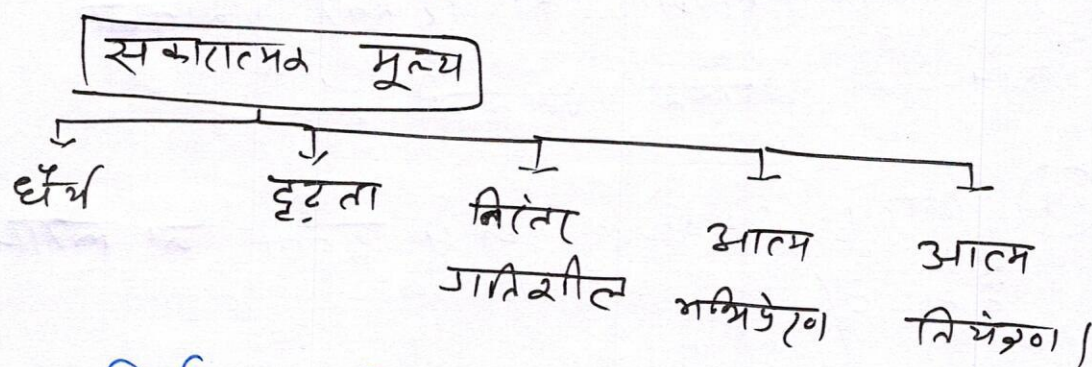 सकारात्मक मूल्य
धैर्य दृढ़ता निरंतर गतिशील आत्म अभिप्रेरण आत्म नियंत्रण।